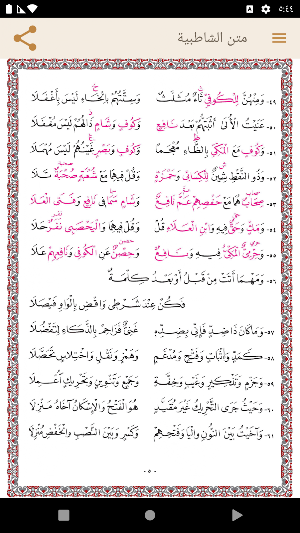 ٥:٤٤
متن الشاطبية
٤٩- وَمِنْهُنَّ لِلْكُوفِيِّ ثَاءٌ مُثَلَّثٌ وَسِتَّتُهُمْ بِالْخَاءِ لَيْسَ بِأَغْفَلَا
٥٠- عَنَيْتُ الْأُلَى أَثْبَتُّهُمْ بَعْدَ نَافِعٍ وَكُوفٍ وَشَامٍ ذَالُهُمْ لَيْسَ مُغْفَلَا
٥١- وَكُوفٍ مَعَ الْمَكِّيِّ بِالظَّاءِ مُعْجَمًا وَكُوفٍ وَبَصْرٍ غَيْنُهُمْ لَيْسَ مُهْمَلَا
٥٢- وَذُو النَّقْطِ شِينٌ لِلْكِسَائِي وَحَمْزَةٍ وَقُلْ فِيهِمَا مَعْ شُعْبَةٍ صُحْبَةٌ تَلَا
٥٣- صِحَابٌ هُمَا مَعْ حَفْصِهِمْ عَمَّ نَافِعٌ وَشَامٍ سَمَا فِي نَافِعٍ وَفَتَى الْعَلَا
٥٤- وَمَكٍّ وَحَقٌّ فِيهِ وَابْنِ الْعَلَاءِ قُلْ وَقُلْ فِيهِمَا وَالْيَحْصَبِي نَفَرٌ حَلَا
٥٥- وَحِرْمِيٌّ الْمَكِّيُّ فِيهِ وَنَافِعٌ وَحِصْنٌ عَنِ الْكُوفِي وَنَافِعِهِمْ عَلَا
٥٦- وَمَهْمَا أَتَتْ مِنْ قَبْلُ أَوْ بَعْدُ كِلْمَةٌ
فَكُنْ عِنْدَ شَرْطِي وَاقْضِ بِالْوَاوِ فَيْصَلَا
٥٧- وَمَا كَانَ ذَا ضِدٍّ فَإِنِّي بِضِدِّهِ غَنِيٌّ فَزَاحِمْ بِالذَّكَاءِ لِتَفْضُلَا
٥٨- كَمَدٍّ وَإِثْبَاتٍ وَفَتْحٍ وَمُدْغَمٍ وَهَمْزٍ وَنَقْلٍ وَاخْتِلَاسٍ تَحَصَّلَا
٥٩- وَجَزْمٍ وَتَذْكِيرٍ وَغَيْبٍ وَخِفَّةٍ وَجَمْعٍ وَتَنْوِينٍ وَتَحْرِيكٍ اُعْمِلَا
٦٠- وَحَيْثُ جَرَى التَّحْرِيكُ غَيْرَ مُقَيَّدٍ هُوَ الْفَتْحُ وَالْإِسْكَانُ آخَاهُ مَنْزِلَا
٦١- وَآخَيْتُ بَيْنَ النُّونِ وَالْيَا وَفَتْحِهِمْ وَكَسْرٍ وَبَيْنَ النَّصْبِ وَالْخَفْضِ مُنْزِلَا
- ٥ -